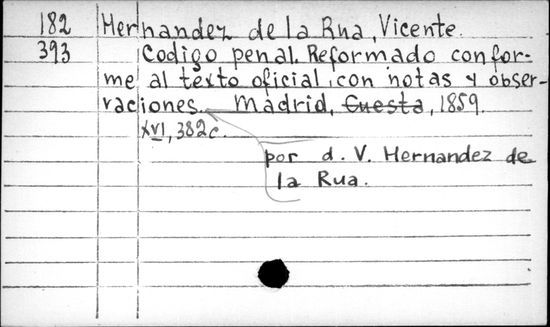 182 Hernandez de la Rua, Vicente.
393 Codigo penal. Reformado confor-
me al texto oficial con notas y obser-
vaciones. Madrid, Cuesta, 1859.
XVI, 382c.
por d. V. Hernandez de
la Rua.